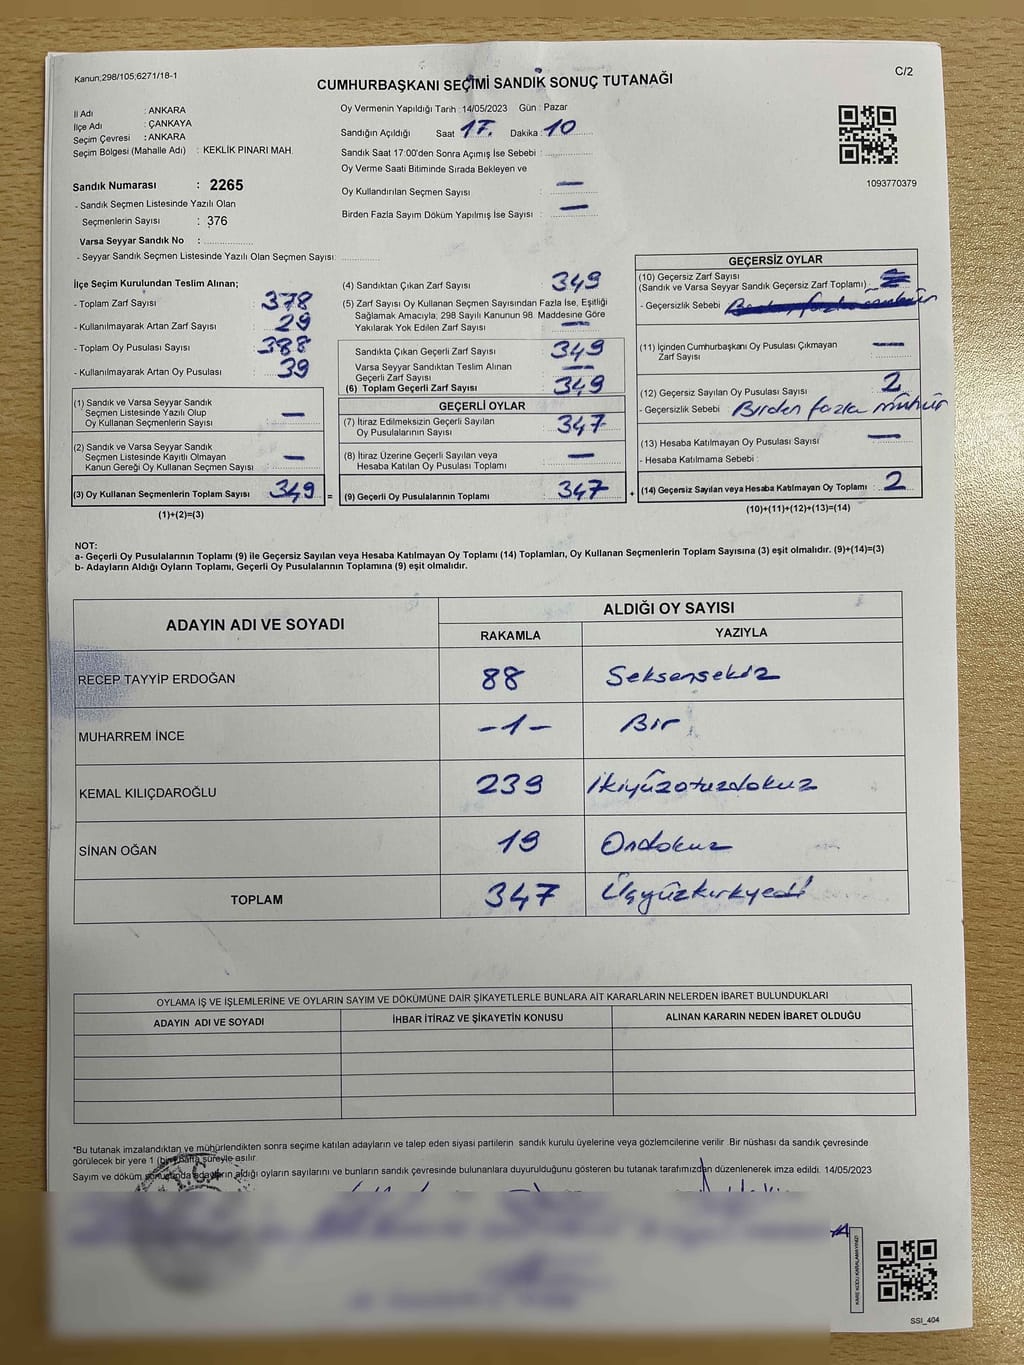 Kanun;298/105;6271/18-1
C/2
CUMHURBAŞKANI SEÇİMİ SANDIK SONUÇ TUTANAĞI
İl Adı : ANKARA
İlçe Adı : ÇANKAYA
Seçim Çevresi : ANKARA
Seçim Bölgesi (Mahalle Adı) : KEKLİK PINARI MAH.
Oy Vermenin Yapıldığı Tarih : 14/05/2023 Gün : Pazar
Sandığın Açıldığı Saat 17. Dakika : 10
Sandık Saat 17:00'den Sonra Açımış İse Sebebi :
Oy Verme Saati Bitiminde Sırada Bekleyen ve
Oy Kullandırılan Seçmen Sayısı : —
Birden Fazla Sayım Döküm Yapılmış İse Sayısı : —
1093770379
Sandık Numarası : 2265
- Sandık Seçmen Listesinde Yazılı Olan
Seçmenlerin Sayısı : 376
Varsa Seyyar Sandık No :
- Seyyar Sandık Seçmen Listesinde Yazılı Olan Seçmen Sayısı:
İlçe Seçim Kurulundan Teslim Alınan;
- Toplam Zarf Sayısı : 378
- Kullanılmayarak Artan Zarf Sayısı : 29
- Toplam Oy Pusulası Sayısı : 388
- Kullanılmayarak Artan Oy Pusulası : 39
(1) Sandık ve Varsa Seyyar Sandık
Seçmen Listesinde Yazılı Olup
Oy Kullanan Seçmenlerin Sayısı : —
(2) Sandık ve Varsa Seyyar Sandık
Seçmen Listesinde Kayıtlı Olmayan
Kanun Gereği Oy Kullanan Seçmen Sayısı : —
(3) Oy Kullanan Seçmenlerin Toplam Sayısı : 349 =
(1)+(2)=(3)
(4) Sandıktan Çıkan Zarf Sayısı : 349
(5) Zarf Sayısı Oy Kullanan Seçmen Sayısından Fazla İse, Eşitliği
Sağlamak Amacıyla; 298 Sayılı Kanunun 98. Maddesine Göre
Yakılarak Yok Edilen Zarf Sayısı : —
Sandıkta Çıkan Geçerli Zarf Sayısı : 349
Varsa Seyyar Sandıktan Teslim Alınan
Geçerli Zarf Sayısı : —
(6) Toplam Geçerli Zarf Sayısı : 349
GEÇERLİ OYLAR
(7) İtiraz Edilmeksizin Geçerli Sayılan
Oy Pusulalarının Sayısı : 347
(8) İtiraz Üzerine Geçerli Sayılan veya
Hesaba Katılan Oy Pusulası Toplamı : —
(9) Geçerli Oy Pusulalarının Toplamı : 347 +
GEÇERSİZ OYLAR
(10) Geçersiz Zarf Sayısı
(Sandık ve Varsa Seyyar Sandık Geçersiz Zarf Toplamı) :
- Geçersizlik Sebebi :
(11) İçinden Cumhurbaşkanı Oy Pusulası Çıkmayan
Zarf Sayısı : —
(12) Geçersiz Sayılan Oy Pusulası Sayısı : 2
- Geçersizlik Sebebi : Birden fazla mühür
(13) Hesaba Katılmayan Oy Pusulası Sayısı : —
- Hesaba Katılmama Sebebi :
(14) Geçersiz Sayılan veya Hesaba Katılmayan Oy Toplamı : 2
(10)+(11)+(12)+(13)=(14)
NOT:
a- Geçerli Oy Pusulalarının Toplamı (9) ile Geçersiz Sayılan veya Hesaba Katılmayan Oy Toplamı (14) Toplamları, Oy Kullanan Seçmenlerin Toplam Sayısına (3) eşit olmalıdır. (9)+(14)=(3)
b- Adayların Aldığı Oyların Toplamı, Geçerli Oy Pusulalarının Toplamına (9) eşit olmalıdır.
ADAYIN ADI VE SOYADI
ALDIĞI OY SAYISI
RAKAMLA YAZIYLA
RECEP TAYYİP ERDOĞAN 88 Seksensekiz
MUHARREM İNCE -1- Bir
KEMAL KILIÇDAROĞLU 239 İkiyüzotuzdokuz
SİNAN OĞAN 19 Ondokuz
TOPLAM 347 Üçyüzkırkyedi
OYLAMA İŞ VE İŞLEMLERİNE VE OYLARIN SAYIM VE DÖKÜMÜNE DAİR ŞİKAYETLERLE BUNLARA AİT KARARLARIN NELERDEN İBARET BULUNDUKLARI
ADAYIN ADI VE SOYADI İHBAR İTİRAZ VE ŞİKAYETİN KONUSU ALINAN KARARIN NEDEN İBARET OLDUĞU
*Bu tutanak imzalandıktan ve mühürlendikten sonra seçime katılan adayların ve talep eden siyasi partilerin sandık kurulu üyelerine veya gözlemcilerine verilir. Bir nüshası da sandık çevresinde
görülecek bir yere 1 (bir) hafta süreyle asılır.
Sayım ve döküm sonucunda adayların aldığı oyların sayılarını ve bunların sandık çevresinde bulunanlara duyurulduğunu gösteren bu tutanak tarafımızdan düzenlenerek imza edildi. 14/05/2023
KARE KODU KARALAMAYINIZ!
SSI_404